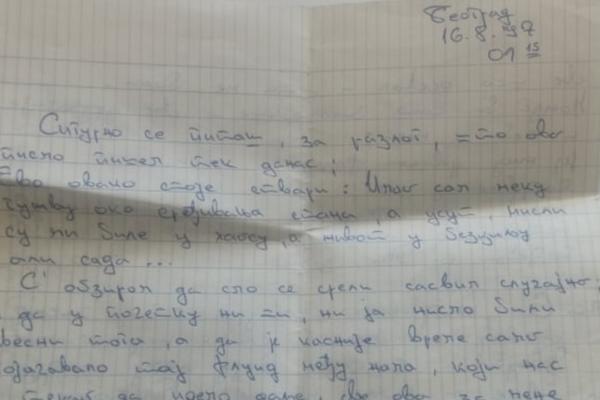 Београд
16.8.'97
01 15
Сигурно се питаш, за разлог, што ово
писмо пишем тек данас;
Ево овако стоје ствари: Имао сам неку
гужву око сређивања стана, а мисли
су ми биле у хаосу, а живот у
али сада ...
С' обзиром да смо се срели сасвим случајно,
да у почетку ни ти, ни ја нисмо били
весни тога, а да је касније време само
ојачавало тај флуид међу нама, који нас
да идемо даље, ово за мене